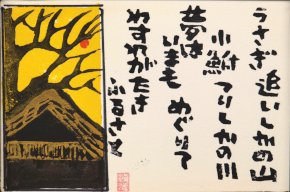 うさぎ追いしかの山
小鮒つりしかの川
夢は
いまも めぐりて
わすれがたき
ふるさと